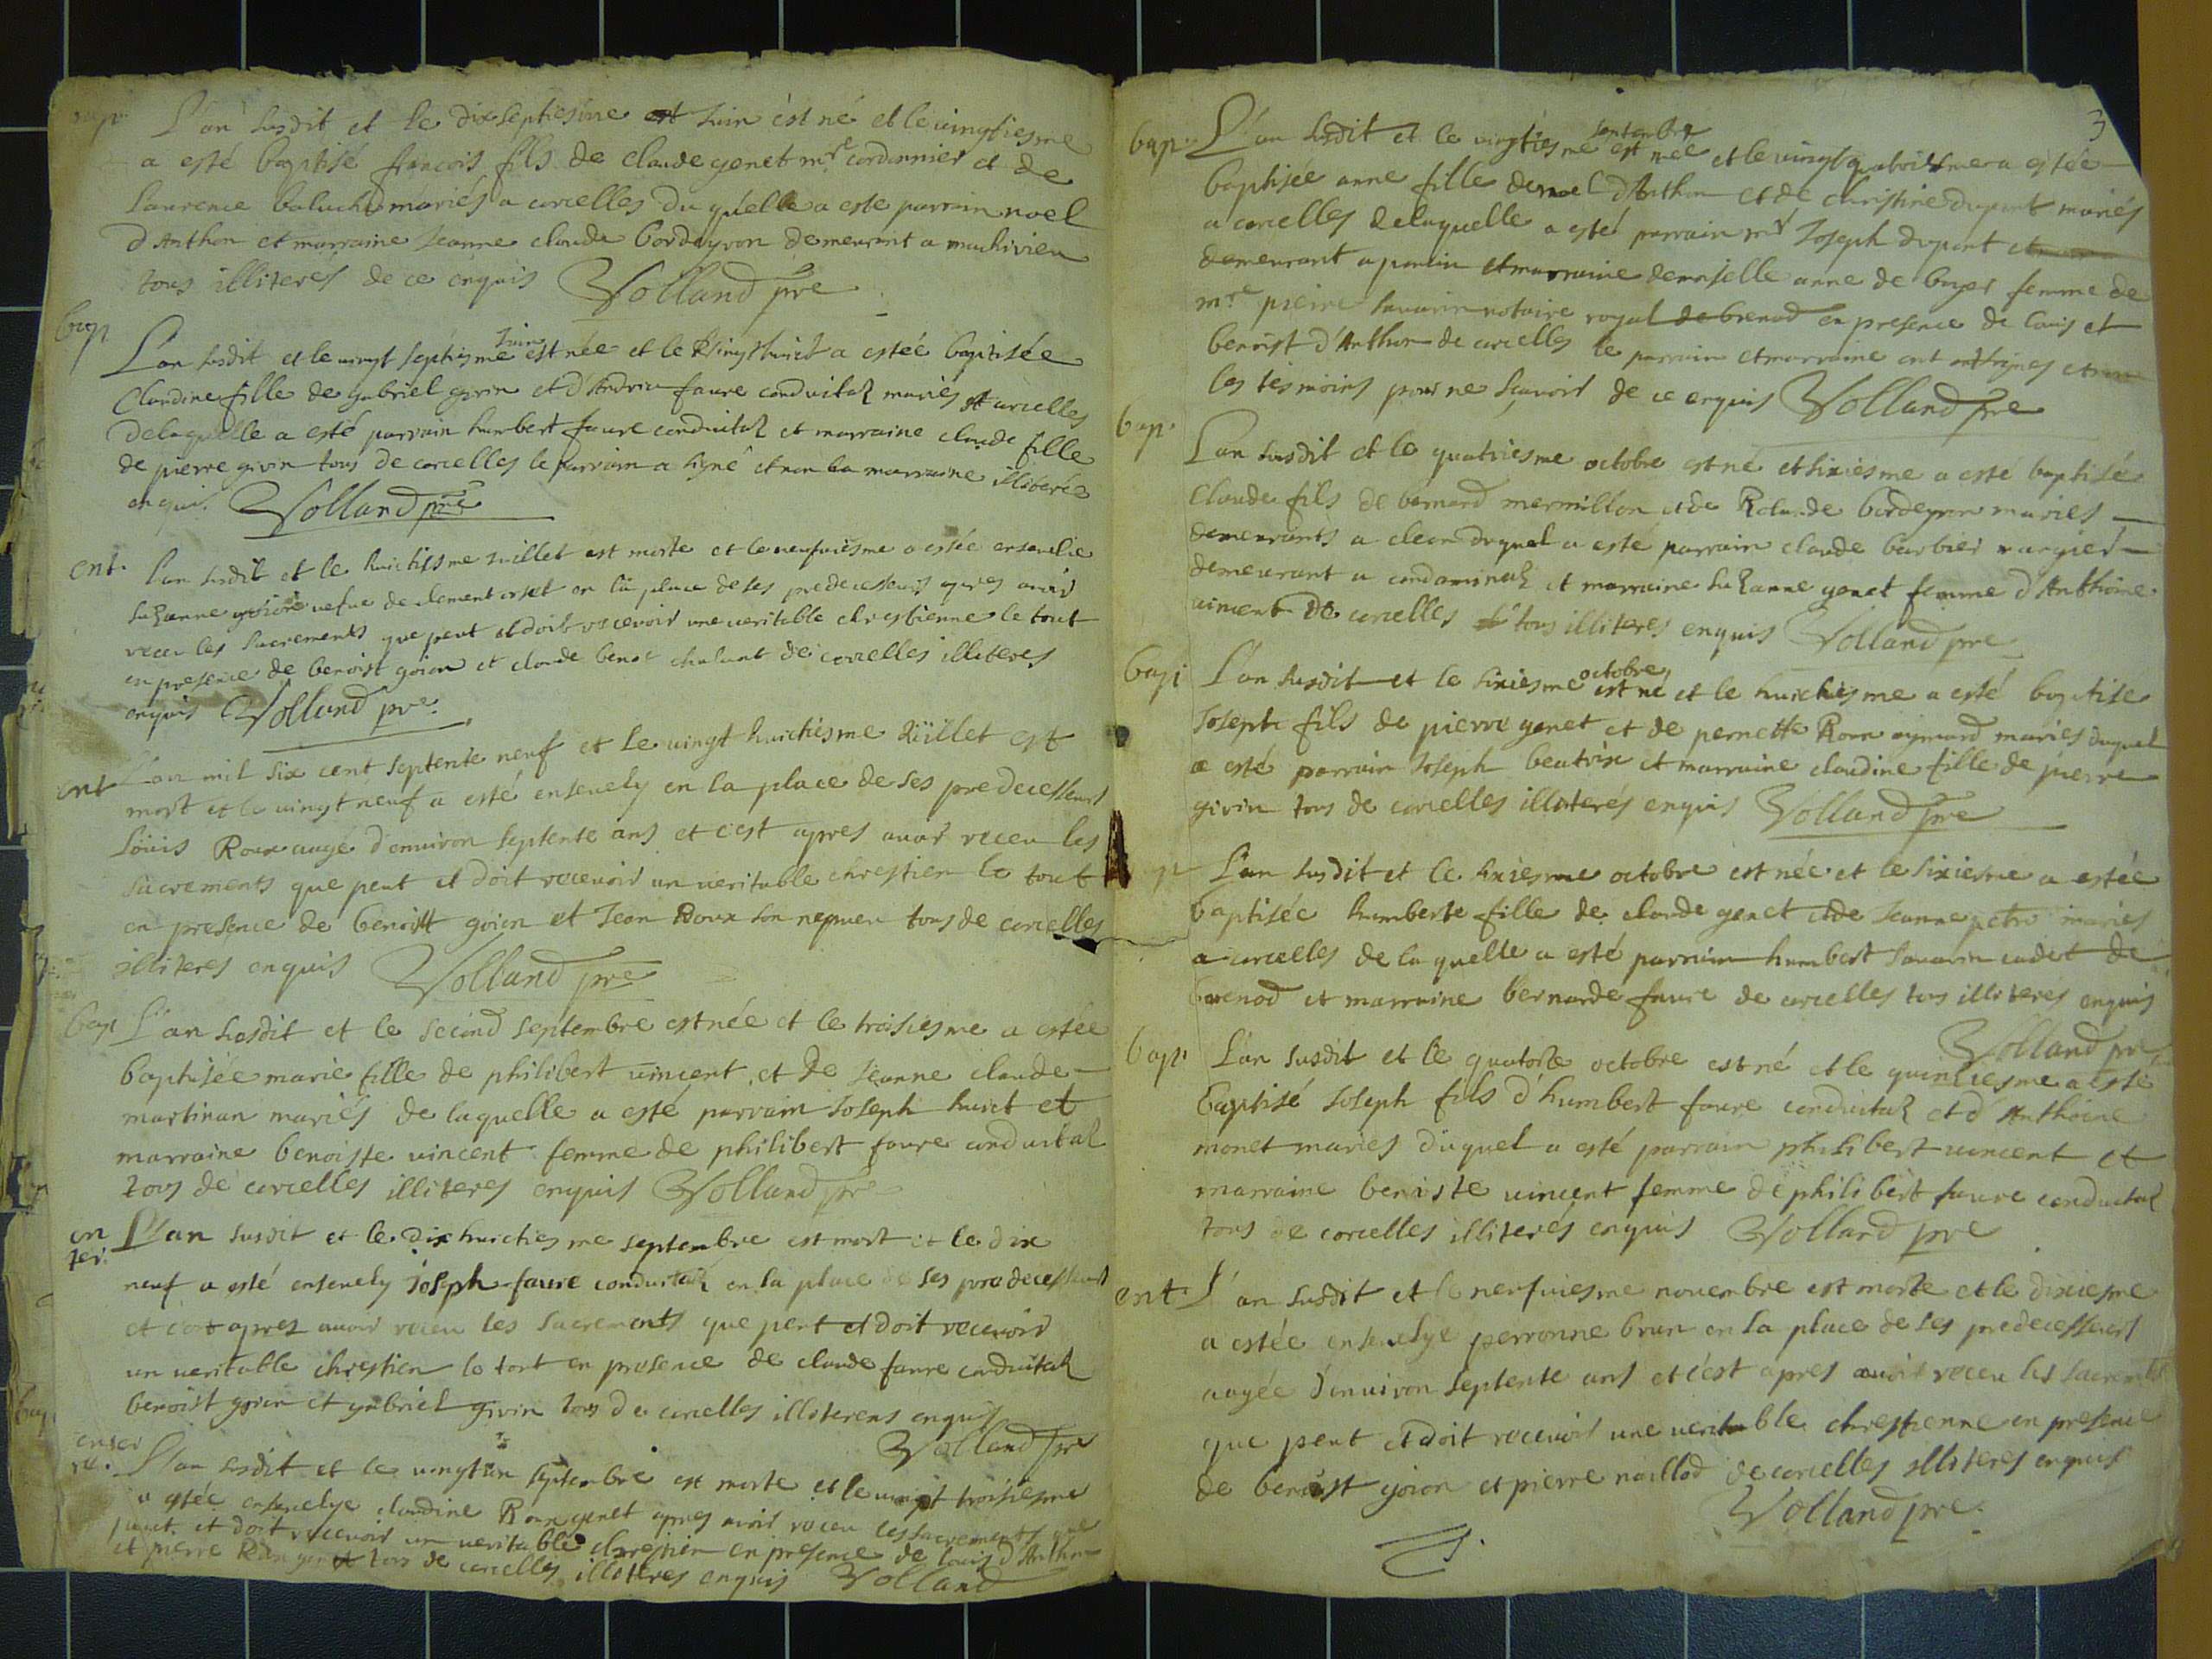 bap. L'an susdit et le dix septiesme juin est né et le vingtiesme
a esté baptisé francois fils de claude genet mre cordonnier et de
Laurence baluche mariés a corcelles du quelle a esté parrain noel
d'Anthon et marraine Jeanne claude bordeyron demeurant a machivieu
tous illiteres de ce enquis Volland pre
bap L'an susdit et le vingt septiesme juin est née et le vingt huict a estée baptisée
Claudine fille de gabriel givin et d'Andrea faure conduital mariés a corcelles
delaquelle a esté parrain humbert faure conduital et marraine claude fille
de pierre givin tous de corcelles le parrain a signé et non la marraine illiterée
enquis. Volland pre
ent. L'an susdit et le huictiesme juillet est morte et le neufviesme a estée ensevelie
suzanne vefue de clement en la place de ses predecesseurs apres avoir
receu les sacrements que peut et doit recevoir une veritable chrestienne le tout
en presence de benoist goion et claude benoit de corcelles illiteres
enquis Volland pre.
ent L'an mil six cent septente neuf et le vingt huictiesme Juillet est
mort et le vingt neuf a esté ensevely en la place de ses predecesseurs
Louis Roux augé d'environ septente ans et c'est apres avoir receu les
sacrements que peut et doit recevoir un veritable chrestien le tout
en presence de benoist goion et Jean Roux son nepveu tous de corcelles
illiteres enquis Volland pre
bap L'an susdit et le second septembre est née et le troisiesme a estée
baptisée marie fille de philibert vincent et de Jeanne claude
martinan mariés de laquelle a esté parrain Joseph huict et
marraine benoiste vincent femme de philibert faure conduital
tous de corcelles illiteres enquis Volland pre
en
ter. L'an susdit et le dix huictiesme septembre est mort et le dix
neuf a esté ensevely Joseph faure conduital en la place de ses predecesseurs
et c'est apres avoir receu les sacrements que peut et doit recevoir
un veritable chrestien le tout en presence de claude faure conduital
benoist goion et gabriel givin tous de corcelles illiteres enquis
Volland pre
L'an susdit et le vingt un septembre est morte et le vingt troisiesme
a estée ensevelye claudine Roux genet apres avoir receu les sacrements que
peut et doit recevoir un veritable chrestien en presence de louis d'Anthon
et pierre Roux genet tous de corcelles illiteres enquis Volland
3
bap. L'an susdit et le vingtiesme septembre est née et le vingt quatriesme a estée
baptisée anne fille de noel d'Anthon et de christine dupont mariés
a corcelles de laquelle a esté parrain mr Joseph dupont
demeurant a poncin et marraine demoiselle anne de buyer femme de
mre pierre savarin notaire royal de brenod en presence de louis et
benoist d'Anthon de corcelles le parrain et marraine ont signes et non
les tesmoins pour ne scavoir de ce enquis Volland pre
bap. L'an susdit et le quatriesme octobre est né et sixiesme a esté baptisé
Claude fils de bernard mermillon et de Rolande bordeyron mariés
demeurants a cleon duquel a esté parrain claude barbier
demeurant a condaminaz et marraine suzanne genet femme d'Anthoine
vincent de corcelles tous illiteres enquis Volland pre
bap: L'an susdit et le sixiesme octobre est né et le huictiesme a esté baptise
Joseph fils de pierre genet et de pernette Roux aymard mariés duquel
a esté parrain Joseph beatrix et marraine claudine fille de pierre
givin tous de corcelles illiterés enquis Volland pre
p L'an susdit et le sixiesme octobre est née et le sixiesme a estée
baptisée humberte fille de claude genet et de Jeanne petro mariés
a corcelles de la quelle a esté parrain humbert savarin cadet de
brenod et marraine bernarde faure de corcelles tous illiteres enquis
Volland pre
bap. L'an susdit et le quatorze octobre est né et le quinziesme a esté
baptisé Joseph fils d'humbert faure conduital et d'Anthoine
monet maries duquel a esté parrain philibert vincent et
marraine benoiste vincent femme de philibert faure conduital
tous de corcelles illiterés enquis Volland pre
ent. L'an susdit et le neufviesme novembre est morte et le dixiesme
a estée ensevelye perronne brun en la place de ses predecesseurs
augée d'environ septente ans et c'est apres avoir receu les sacrements
que peut et doit recevoir une veritable chrestienne en presence
de benoist goion et pierre naillod de corcelles illiteres enquis
Volland pre.